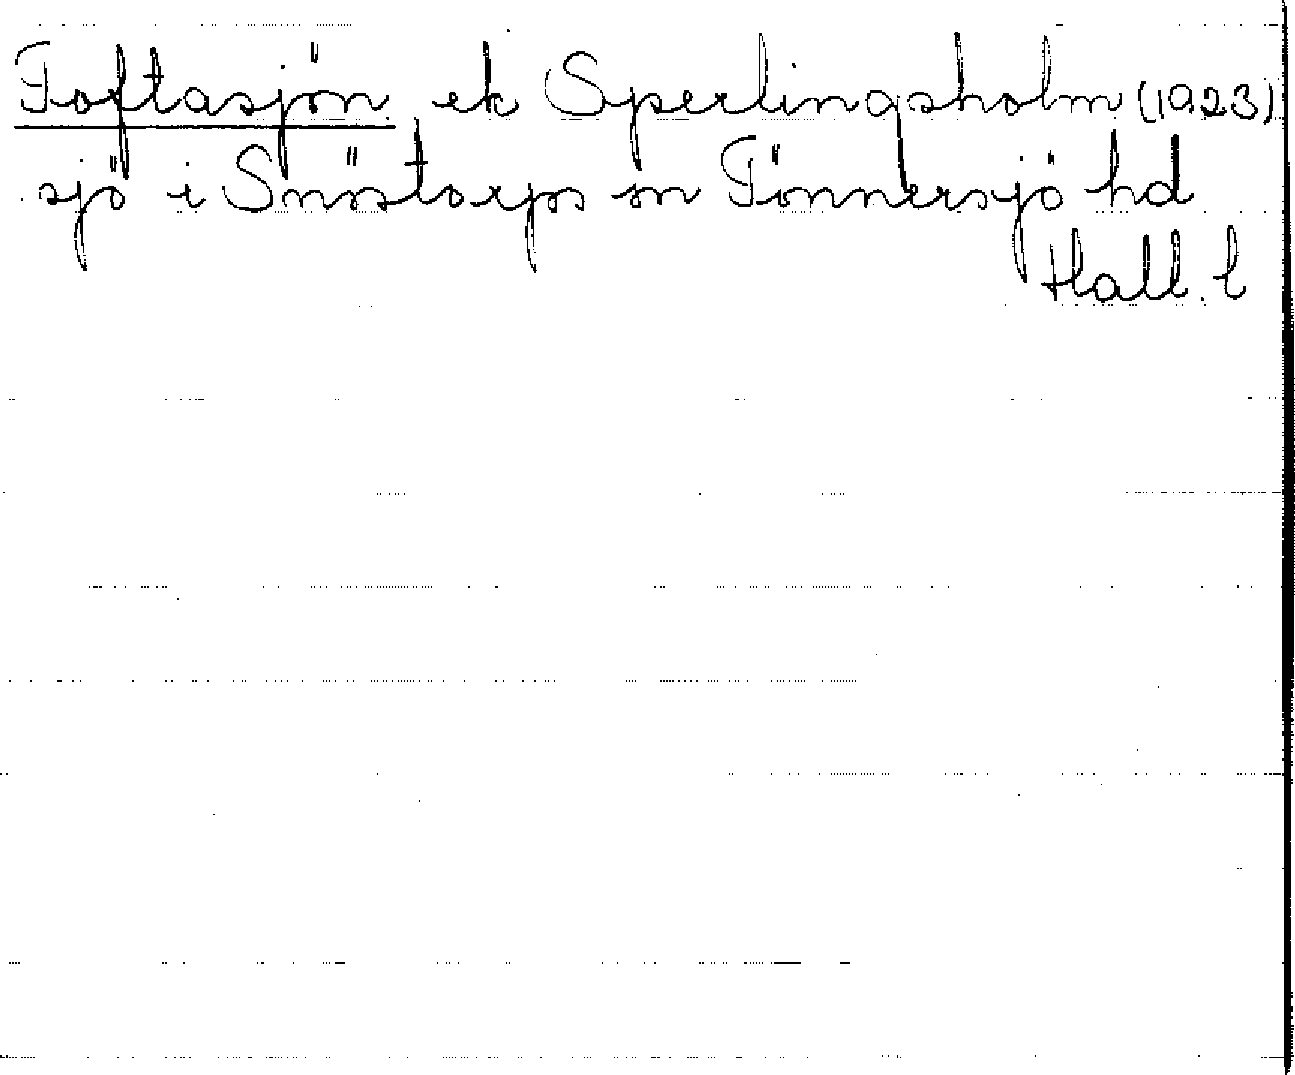 Toftasjön ek Sperlingsholm (1923)
sjö i Snöstorps sn Tönnersjö hd
Hall. l